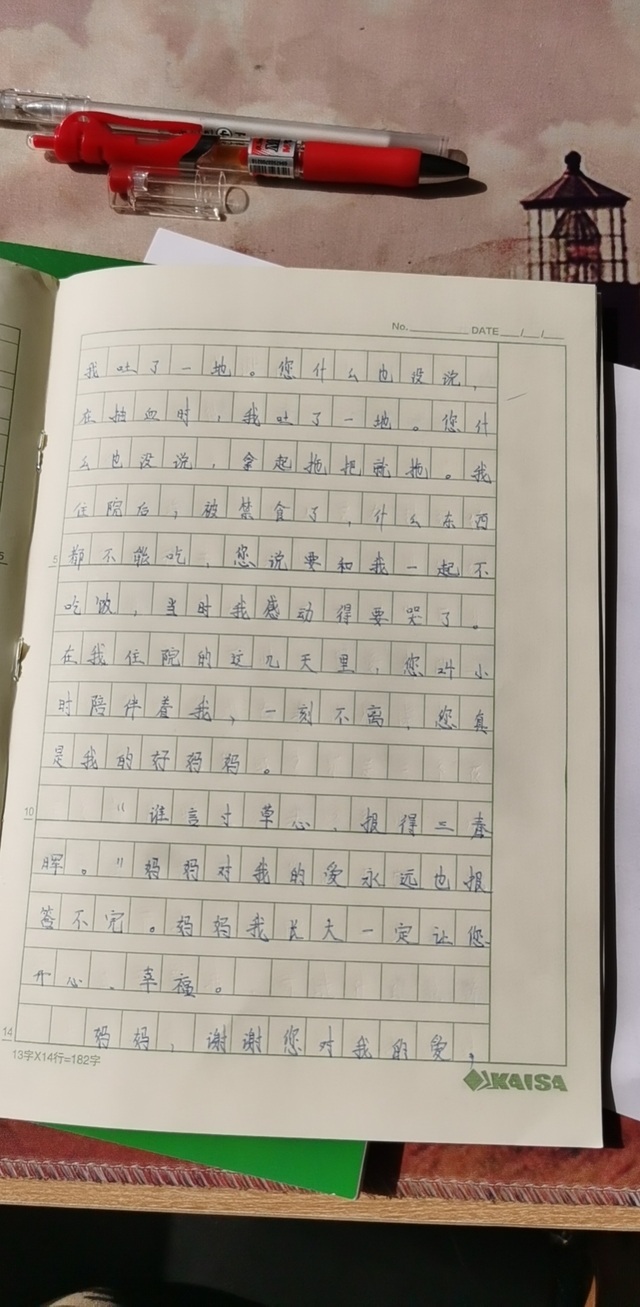 No. DATE / /
我吐了一地。您什么也没说，
在抽血时，我吐了一地。您什
么也没说，拿起拖把就拖。我
住院后，被禁食了，什么东西
都不能吃，您说要和我一起不
吃饭，当时我感动得要哭了。
在我住院的这几天里，您24小
时陪伴着我，一刻不离，您真
是我的好妈妈。
“谁言寸草心，报得三春
晖。”妈妈对我的爱永远也报
答不完。妈妈我长大一定让您
开心、幸福。
妈妈，谢谢您对我的爱，
5
5
10
14
13字X14行=182字
KAISA